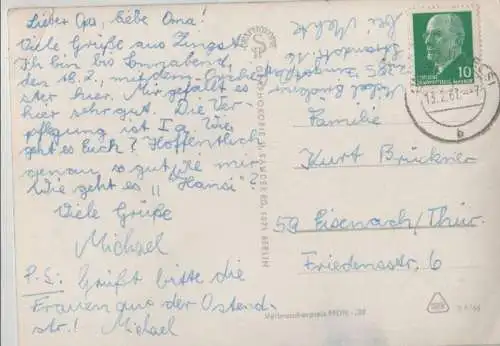 Lieber Opa, liebe Oma!
Viele Grüße aus Zingst.
Ich bin bis Sonnabend,
den 18.2., mit dem Orche-
ster hier. Mir gefällt es
hier sehr gut. Die Ver-
pflegung ist I a. Wie
geht es Euch? Hoffentlich
genau so gut wie mir.
Wie geht es "Hansi"?
Viele Grüße
Michael
P.S.: Grüßt bitte die
Frauen aus der Ostend-
str.! Michael
bei
Strandstr. 16
Familie
Kurt Brückner
59 Eisenach/Thür.
Friedensstr. 6
10
13.2.67
b
1071 BERLIN
Verbraucherpreis MDN -,20